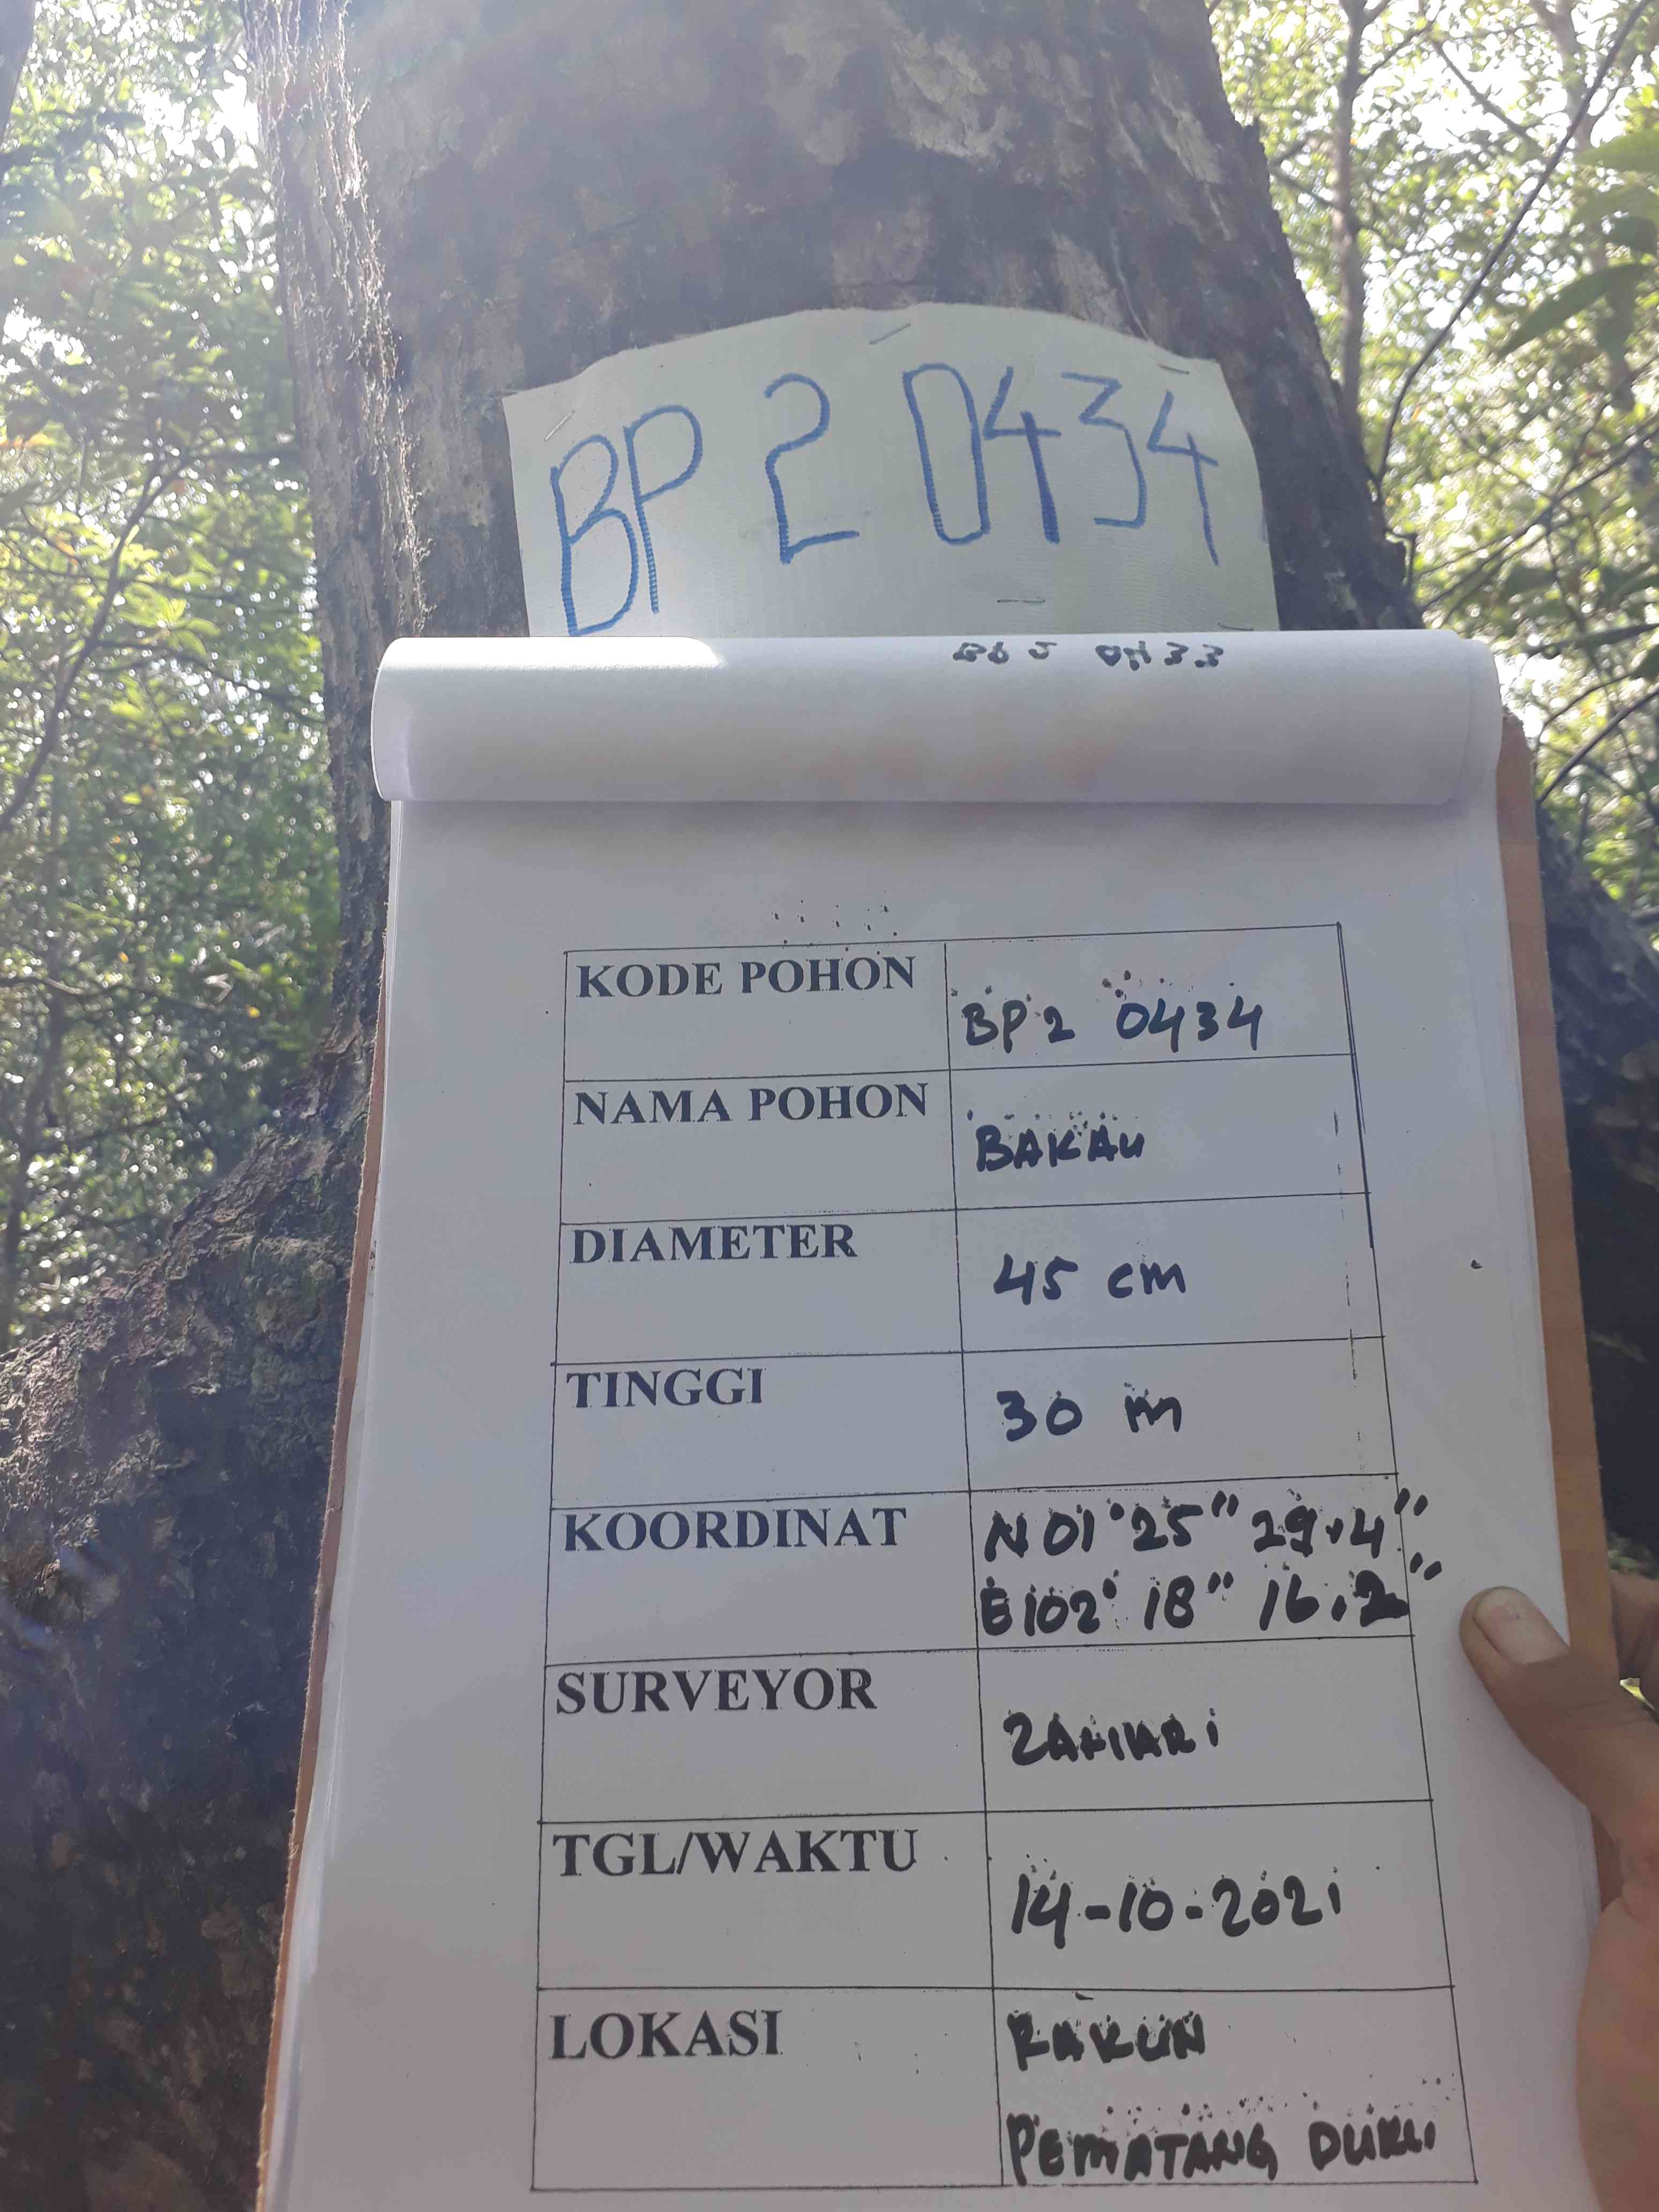 BP 2 0434
KODE POHON BP2 0434
NAMA POHON BAKAU
DIAMETER 45 cm
TINGGI 30 m
KOORDINAT N 01°25" 29.4"
E 102° 18" 16.2"
SURVEYOR
TGL/WAKTU 14-10-2021
LOKASI RAKUN
PEMATANG DUKU